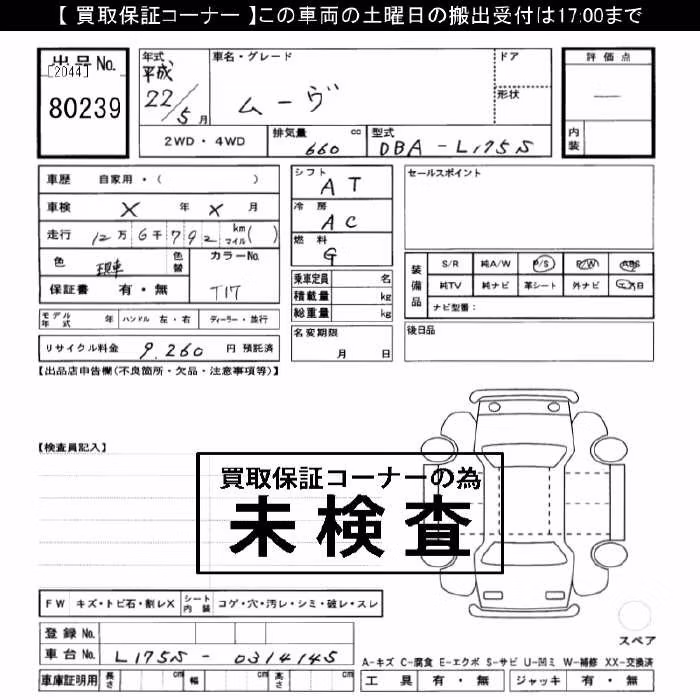 【 買取保証コーナー 】この車両の土曜日の搬出受付は17:00まで
出品No.
[2044]
80239
年式
平成
22/5月
車名・グレード
ムーヴ
ドア
形状
評価点
―
内装
2WD・4WD
排気量 660 cc
型式 DBA-L175S
車歴 自家用・( )
車検 X 年 X 月
走行 12万6千792 km マイル( )
色 現車 色替
カラーNo. T17
保証書 有・無
シフト AT
冷房 AC
燃料 G
乗車定員 名
積載量 kg
総重量 kg
名変期限 月 日
セールスポイント
装備品
S/R 純A/W P/S P/W ABS
純TV 純ナビ 革シート 外ナビ
ナビ型番：
後日品
モデル年式 年 ハンドル 左・右 ディーラー・並行
リサイクル料金 9,260 円 預託済
【出品店申告欄(不良箇所・欠品・注意事項等)】
【検査員記入】
買取保証コーナーの為
未検査
FW キズ・トビ石・割レX シート内装 コゲ・穴・汚レ・シミ・破レ・スレ
登録No.
車台No. L175S - 0314145
車庫証明用 長さ cm 幅 cm 高さ cm
スペア
A-キズ C-腐食 E-エクボ S-サビ U-凹ミ W-補修 XX-交換済
工具 有・無 ジャッキ 有・無